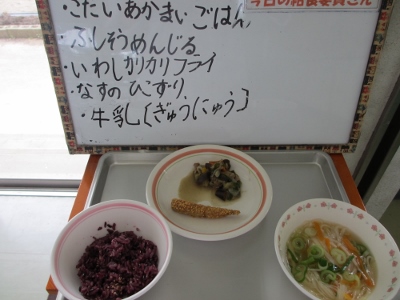 今日の給食委員さん
・こだいあかまいごはん
・ふしそうめんじる
・いわしカリカリフライ
・なすのひこずり
・牛乳[ぎゅうにゅう]